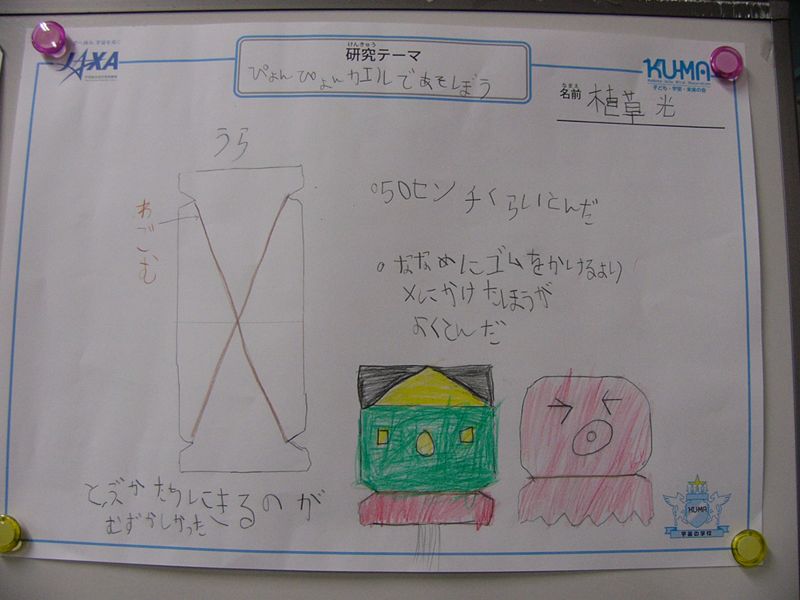 JAXA
けんきゅう
研究テーマ
ぴょんぴょんカエルであそぼう
KU-MA
子ども・宇宙・未来の会
なまえ
名前
植草 光
うら
わごむ
○50センチくらいとんだ
○ななめにゴムをかけるより
×にかけたほうが
よくとんだ
かたちにきるのが
むずかしかった
KU-MA
宇宙の学校